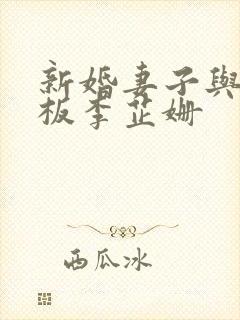 新婚妻子與
板李芷姍
西瓜冰